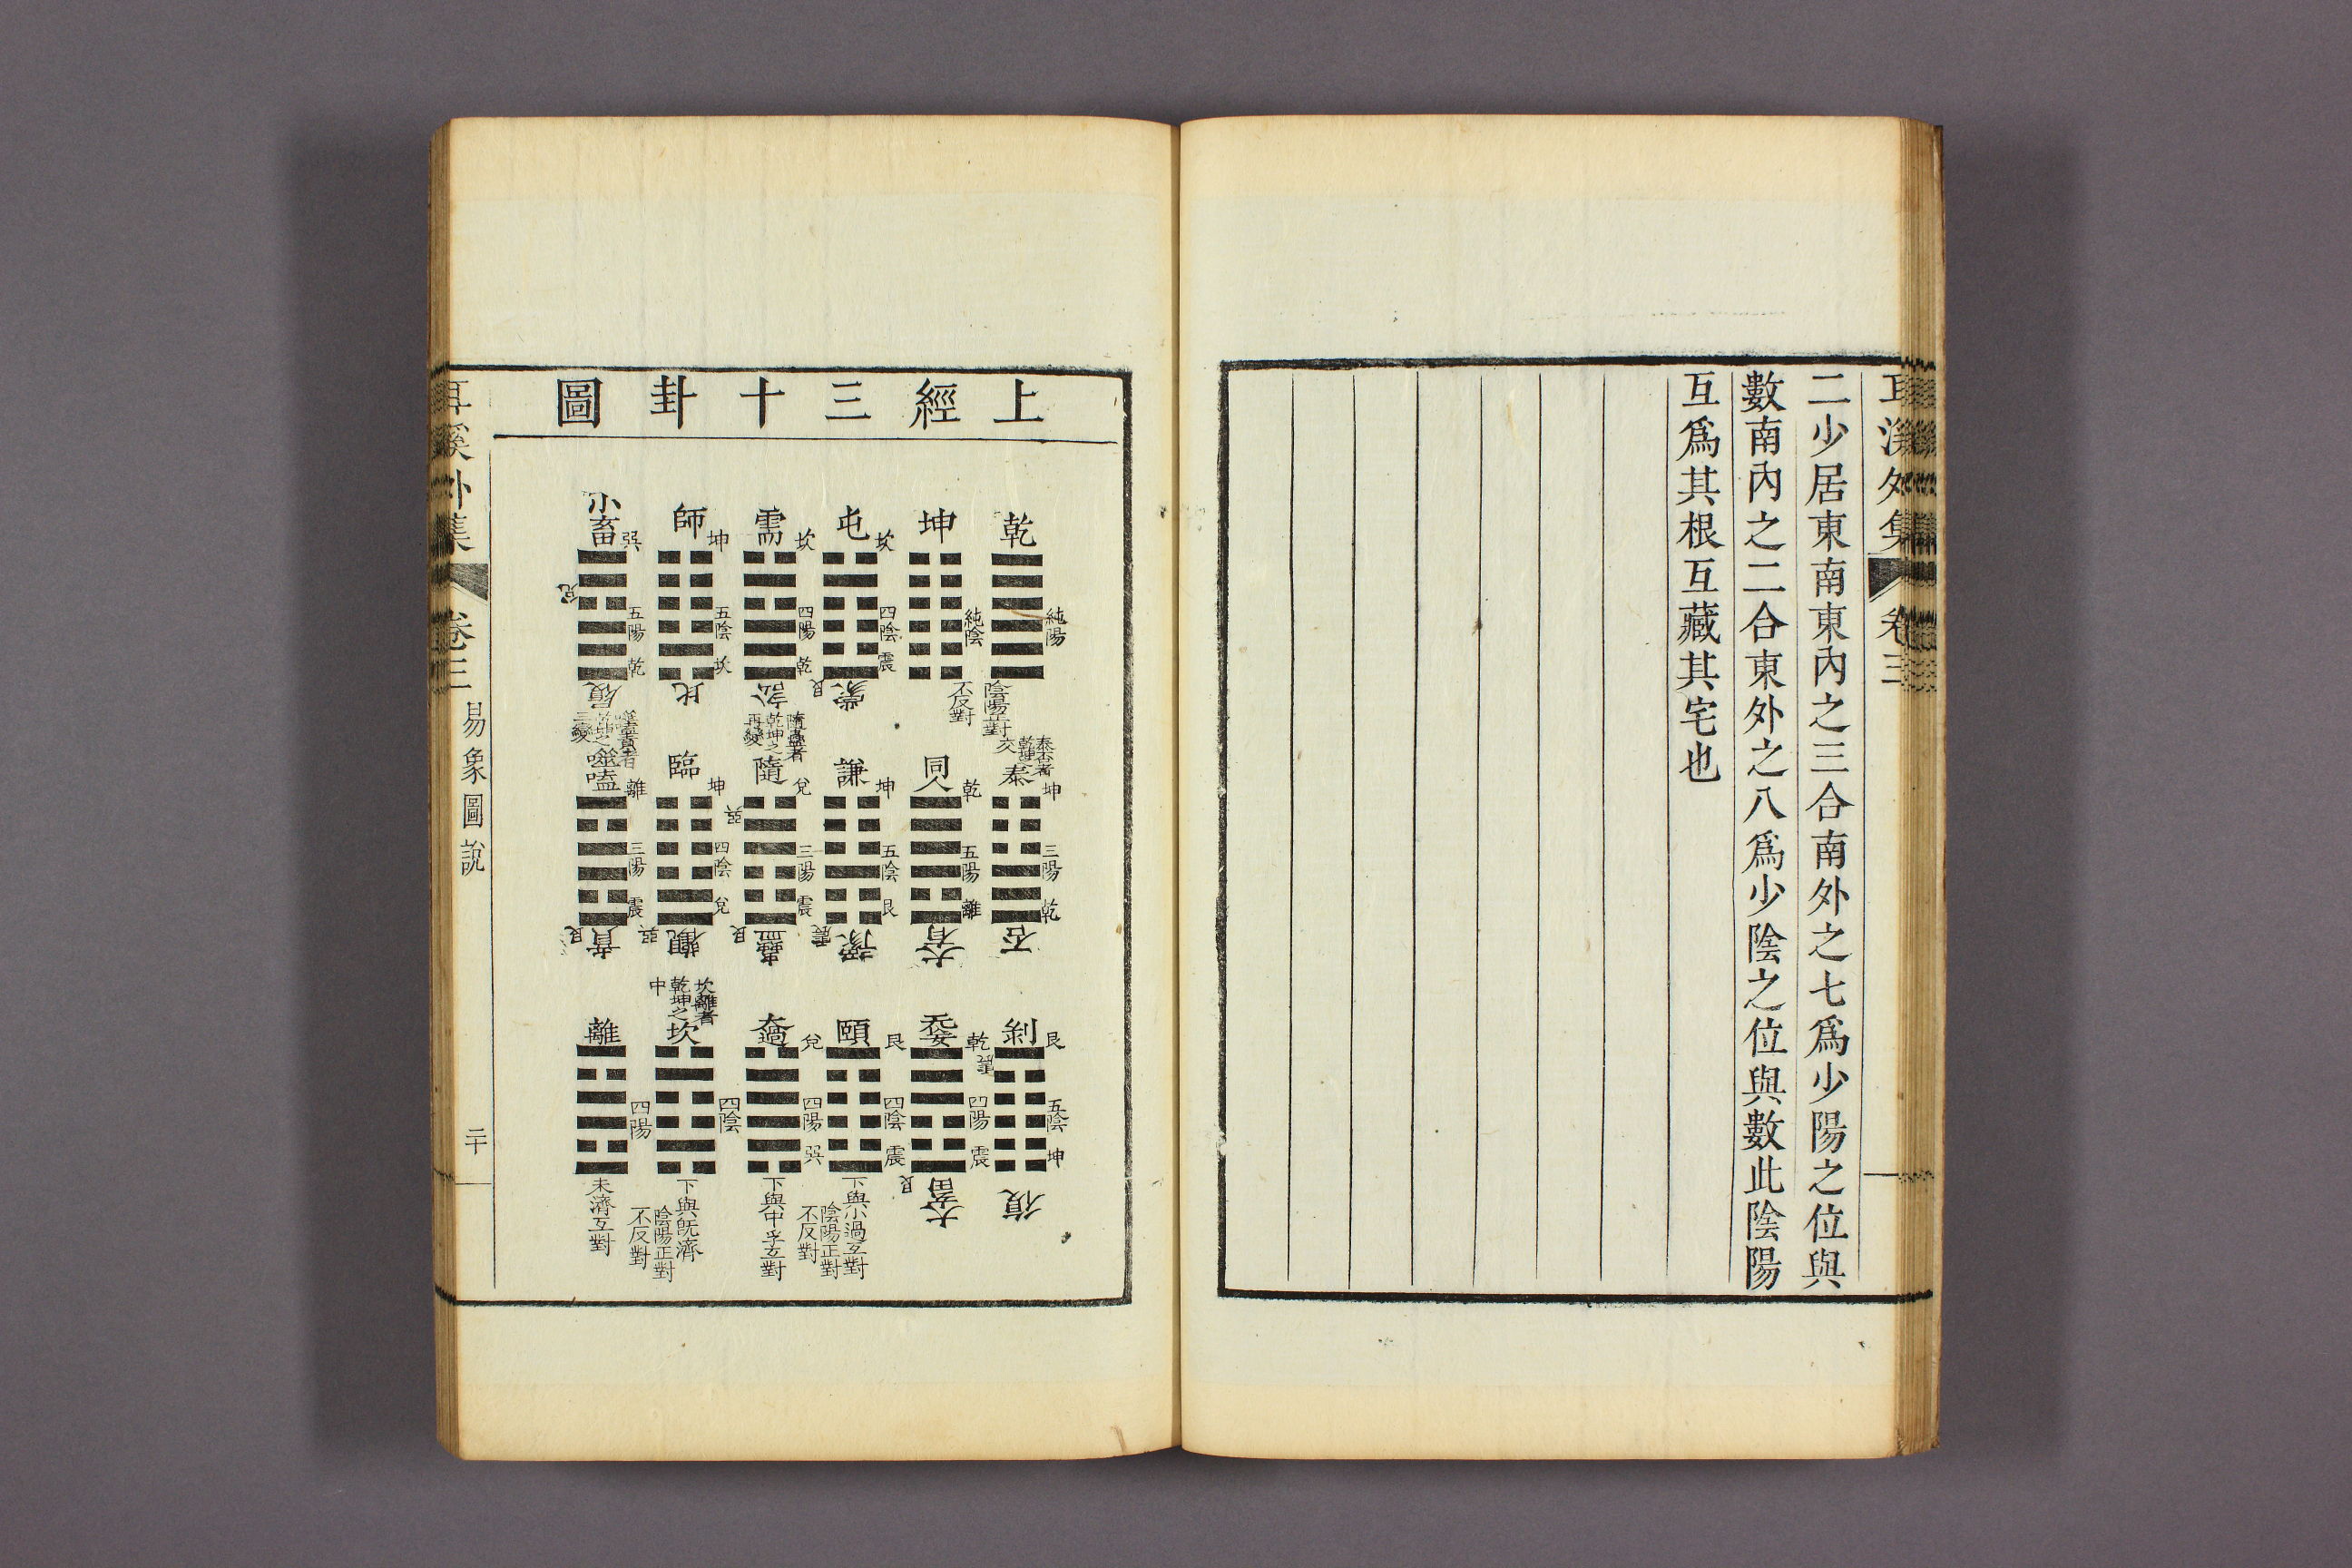 耳溪外集
卷三
二少居東南東內之三合南外之七爲少陽之位與
數南內之二合東外之八爲少陰之位與數此陰陽
互爲其根互藏其宅也
上經三十卦圖
乾
純陽
陰陽正對
不反對
坤
純陰
屯
坎
四陰
震
蒙
艮
需
坎
四陽
乾
訟
師
坤
五陰
坎
比
小畜
巽
五陽
乾
履
兌
泰否者
乾坤之
交
泰
坤
三陽
乾
否
同人
乾
五陽
離
大有
謙
坤
五陰
艮
豫
震
隨蠱者
乾坤之
再變
隨
兌
三陽
震
蠱
巽
艮
臨
坤
四陰
兌
觀
巽
噬嗑賁者
乾坤之
三變
噬嗑
離
三陽
震
賁
艮
剝
艮
五陰
坤
復
震
无妄
乾
四陽
震
大畜
艮
頤
艮
四陰
震
下與小過互對
陰陽正對
不反對
大過
兌
四陽
巽
下與中孚互對
坎離者
乾坤之
中
坎
四陰
下與旣濟
陰陽正對
不反對
離
四陽
未濟互對
耳溪外集
卷三
易象圖說
二十